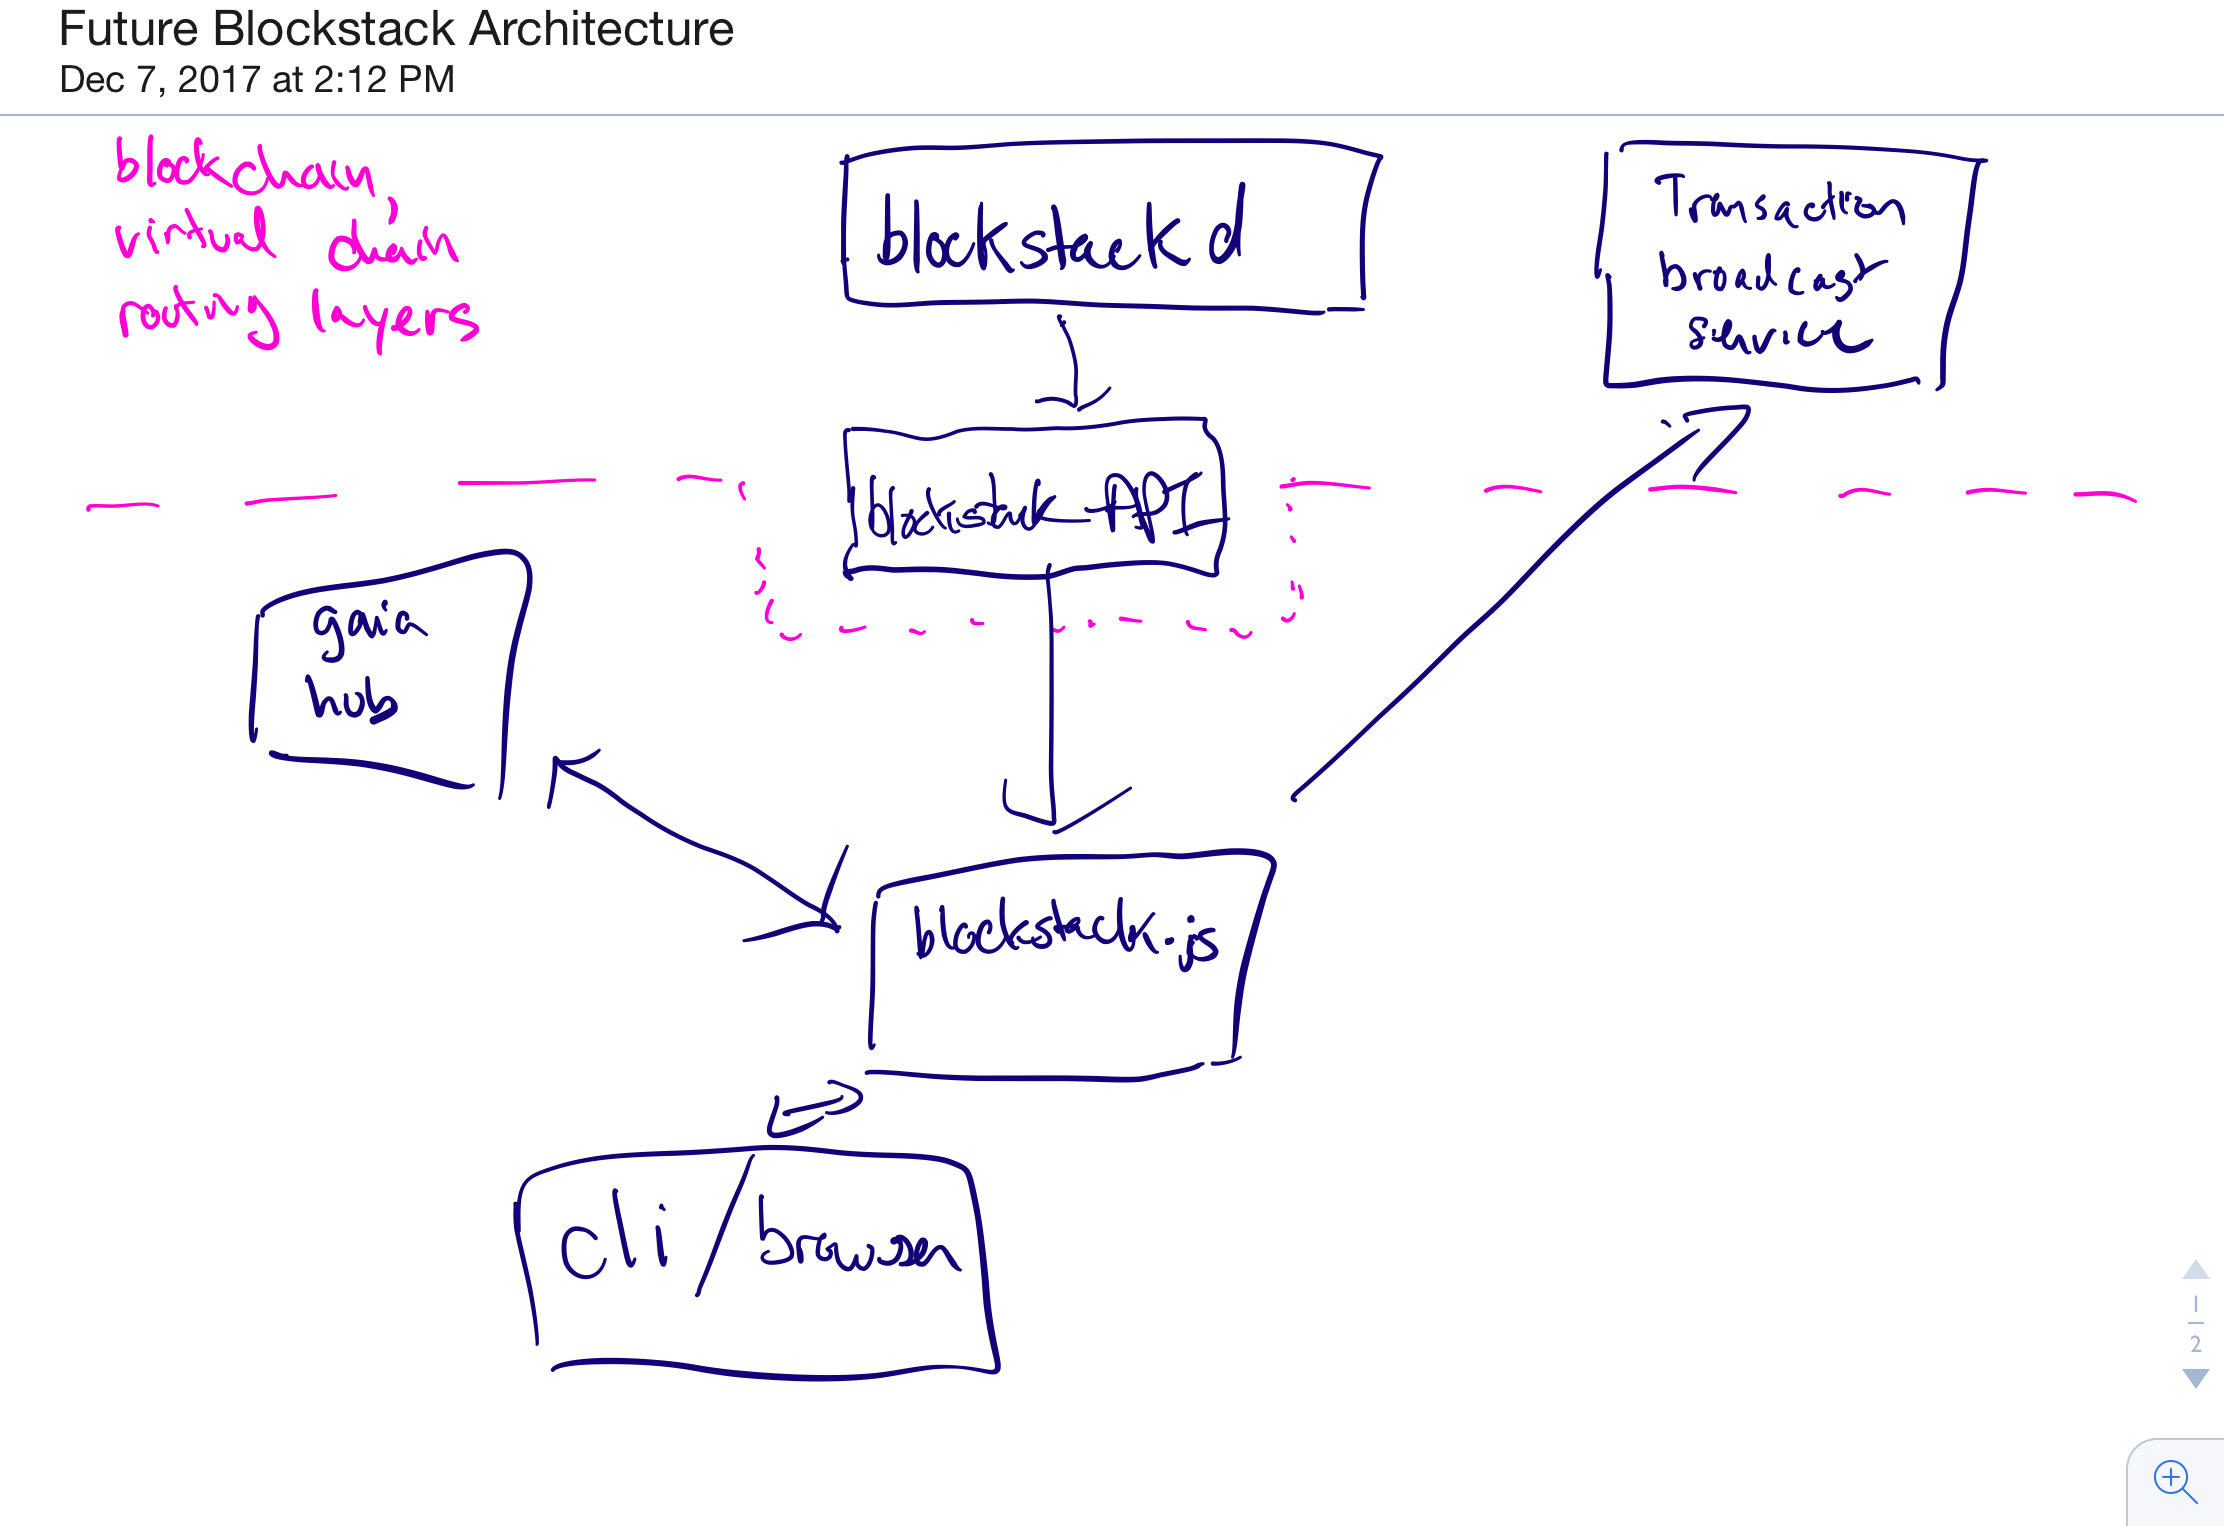 Future Blockstack Architecture
Dec 7, 2017 at 2:12 PM
blockchain,
virtual chain
routing layers
blockstack d
Transaction
broadcast
service
blockstack-API
gaia
hub
blockstack.js
cli / browser
1
2